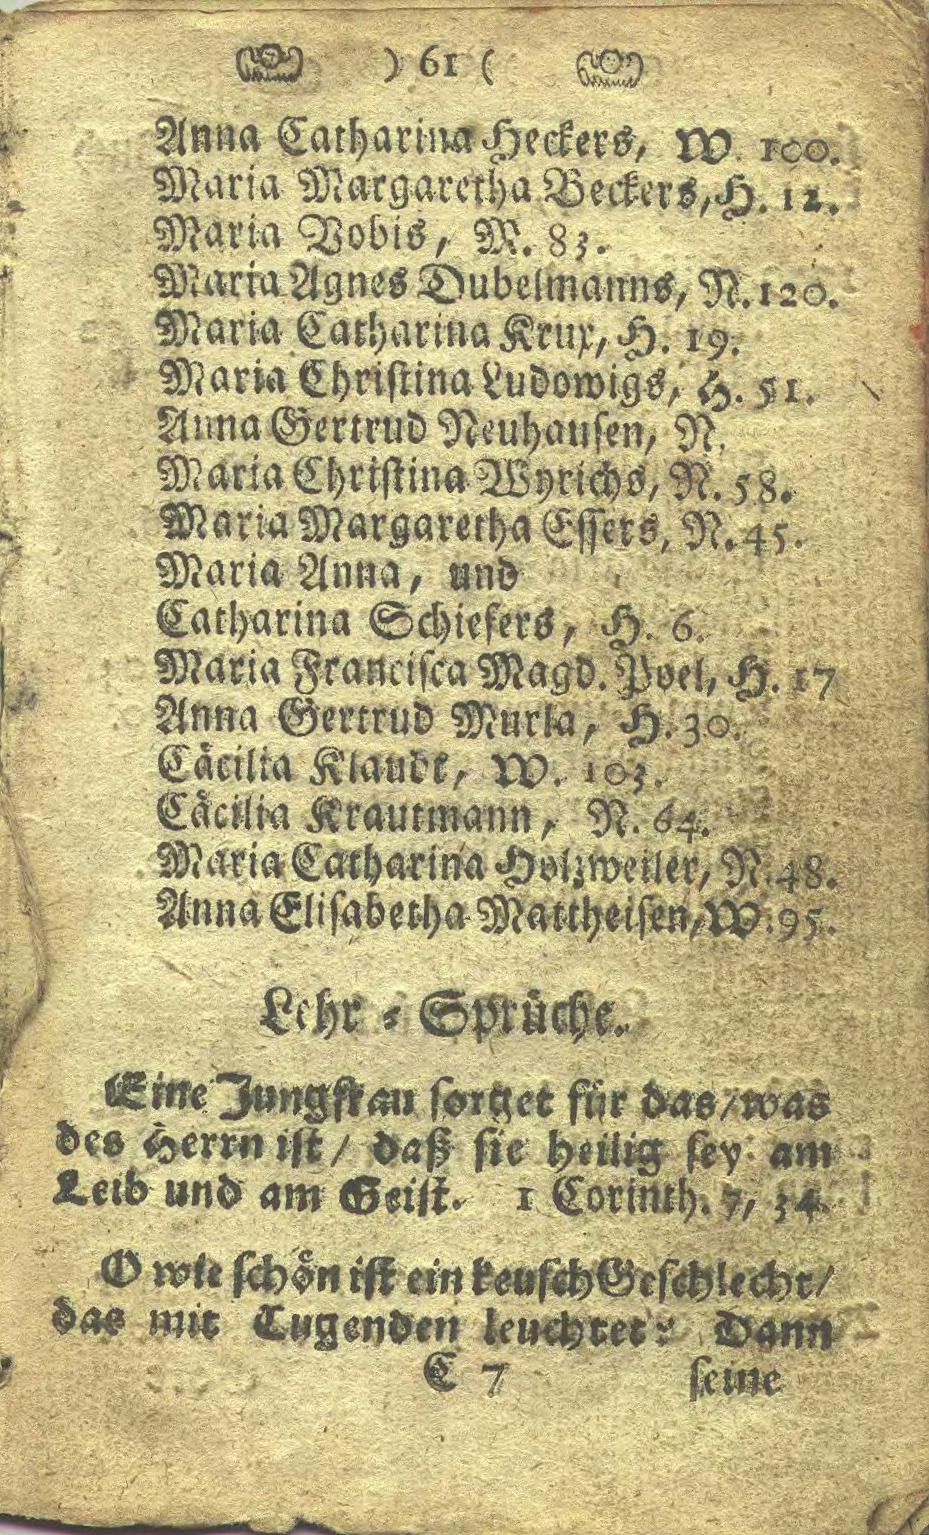 ) 61 (
Anna Catharina Heckers, W. 100.
Maria Margaretha Beckers, H. 12.
Maria Vobis, M. 83.
Maria Agnes Dubelmanns, N. 120.
Maria Catharina Krux, H. 19.
Maria Christina Ludowigs, H. 51.
Anna Gertrud Neuhausen, N.
Maria Christina Wyrichs, N. 58.
Maria Margaretha Essers, N. 45.
Maria Anna, und
Catharina Schiefers, H. 6.
Maria Francisca Magd. Poel, H. 17
Anna Gertrud Murla, H. 30.
Cäcilia Klaudt, W. 103.
Cäcilia Krautmann, N. 64.
Maria Catharina Holzweiler, N. 48.
Anna Elisabetha Mattheisen, W. 95.
Lehr-Sprüche.
Eine Jungfrau sorget für das/ was
des Herrn ist/ daß sie heilig sey am
Leib und am Geist. 1 Corinth. 7, 34.
O wie schön ist ein keusch Geschlecht/
das mit Tugenden leuchtet: Dann
C 7 seine